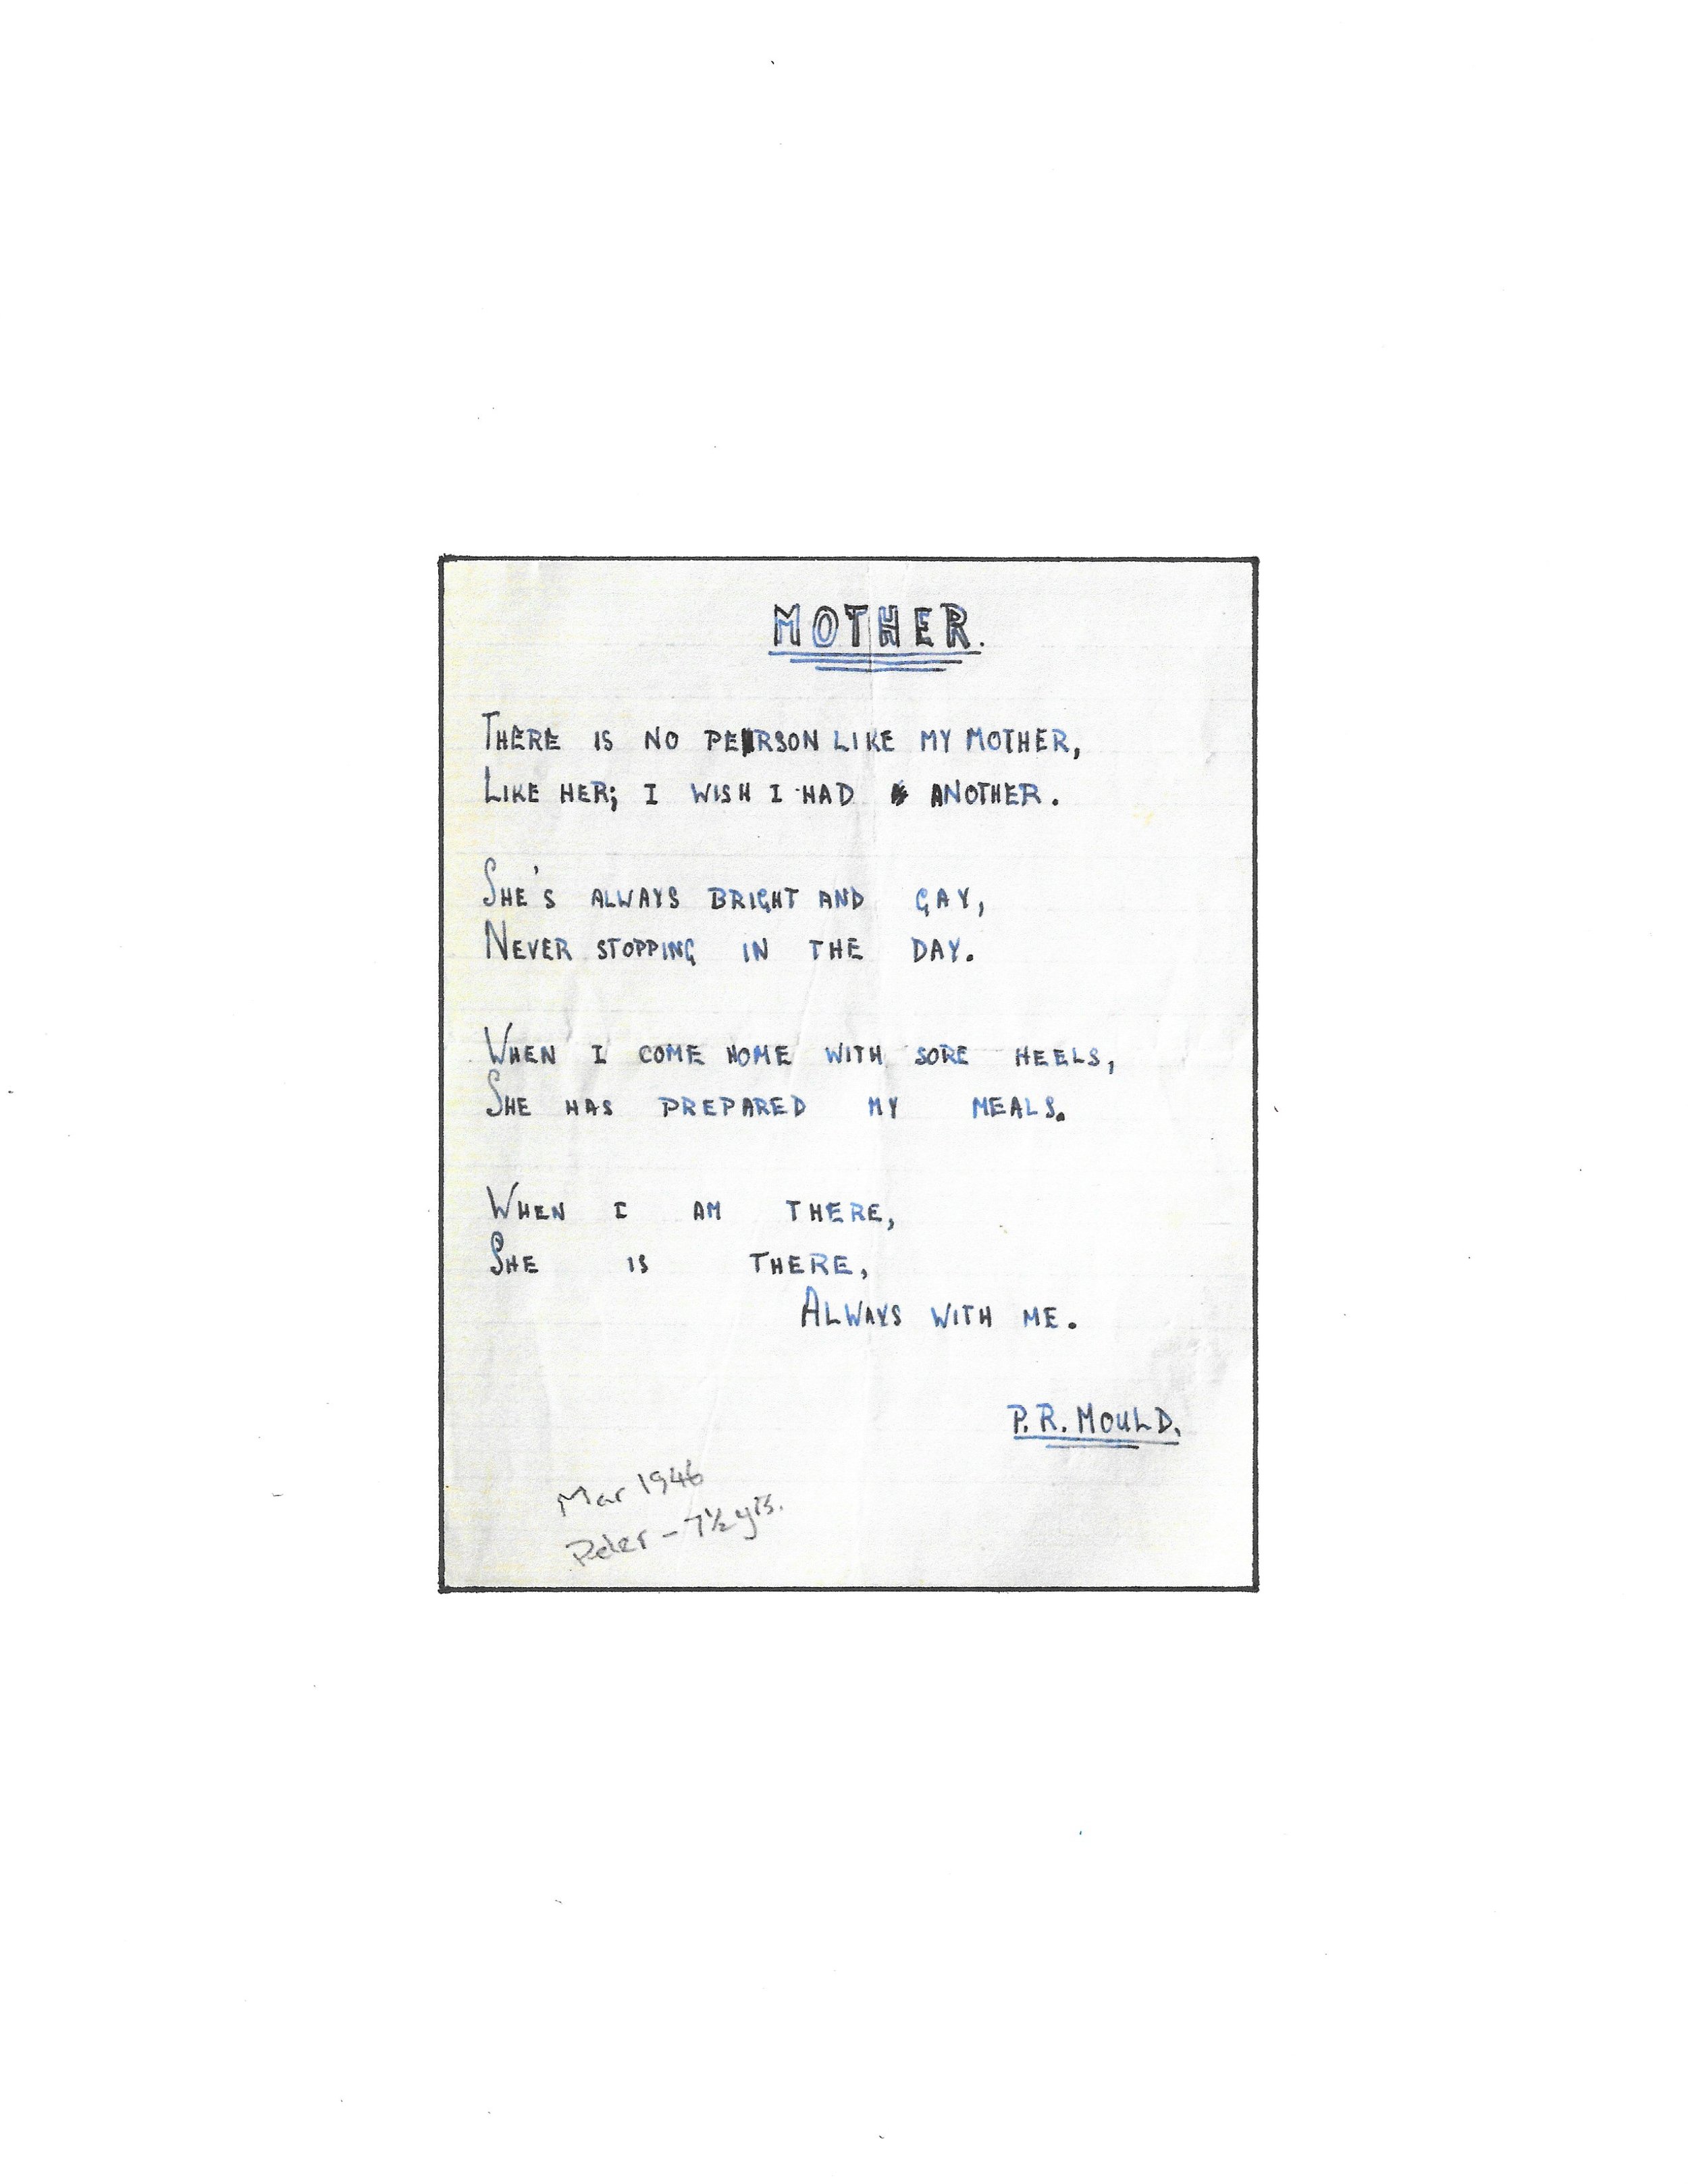 MOTHER.
THERE IS NO PERSON LIKE MY MOTHER,
LIKE HER; I WISH I HAD ANOTHER.
SHE'S ALWAYS BRIGHT AND GAY,
NEVER STOPPING IN THE DAY.
WHEN I COME HOME WITH SORE HEELS,
SHE HAS PREPARED MY MEALS.
WHEN I AM THERE,
SHE IS THERE,
ALWAYS WITH ME.
P.R. MOULD.
Mar 1946
Peter - 7½ yrs.